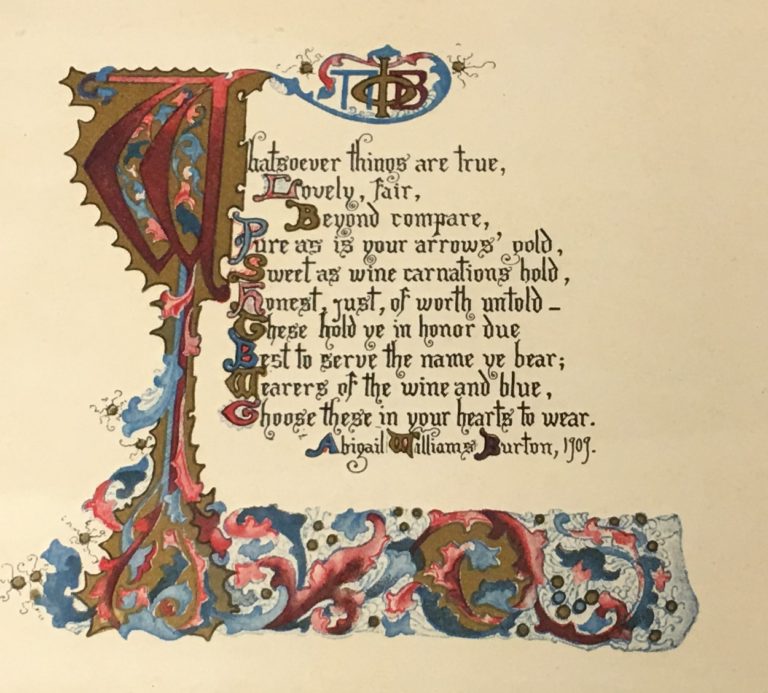 ΠΒΦ
Whatsoever things are true,
Lovely, fair,
Beyond compare,
Pure as is your arrows' gold,
Sweet as wine carnations hold,
Honest, just, of worth untold –
These hold ye in honor due
Best to serve the name ye bear;
Wearers of the wine and blue,
Choose these in your hearts to wear.
Abigail Williams Burton, 1909.